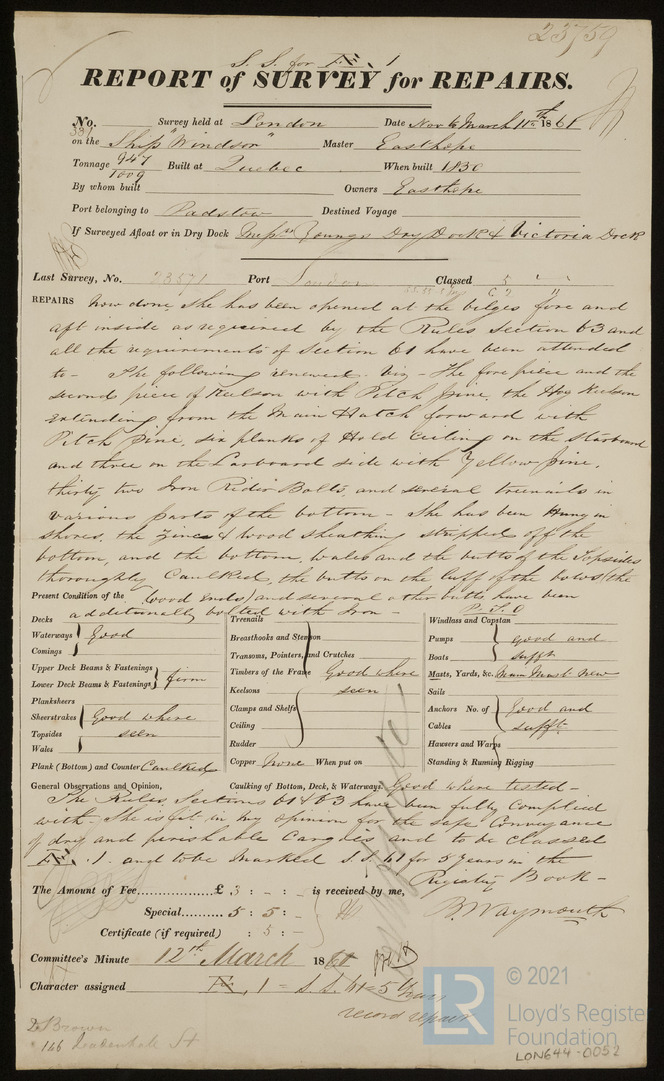 23759
S. S. for Æ 1
REPORT of SURVEY for REPAIRS.
No. 381 Survey held at London Date Nov to March 11th 1861
on the Ship "Windsor" Master Easthope
Tonnage 947 1009 Built at Quebec When built 1836
By whom built Owners Easthope
Port belonging to Padstow Destined Voyage
If Surveyed Afloat or in Dry Dock Youngs Dry Dock & Victoria Dock
Last Survey, No. 23571 Port London Classed 5
REPAIRS Now done, She has been opened at the bilges fore and
aft inside as required by the Rules Section 63 and
all the requirements of Section 61 have been attended
to - The following renewed viz - The fore piece and the
second piece of Keelson with Pitch pine, the Hog Keelson
extending from the Main Hatch forward with
Pitch pine, six planks of Hold Ceiling on the Starboard
and three on the Larboard side with Yellow pine,
thirty two Iron Rider Bolts, and several treenails in
various parts of the bottom - She has been hung in
shores, the zinc & wood sheathing stripped off the
bottom, and the bottom, wales and the butts of the Topsides
thoroughly Caulked, the butts on the luff of the bows (the
Present Condition of the wood ends) and several other butts have been
additionally bolted with Iron - P. T. O
Decks
Waterways Good
Comings
Upper Deck Beams & Fastenings
Lower Deck Beams & Fastenings firm
Planksheers
Sheerstrakes Good where
Topsides seen
Wales
Plank (Bottom) and Counter Caulked
Treenails
Breasthooks and Stemson
Transoms, Pointers, and Crutches
Timbers of the Frame Good where
Keelsons seen
Clamps and Shelfs
Ceiling
Rudder
Copper None When put on
Windlass and Capstan
Pumps good and
Boats sufft
Masts, Yards, &c. Main Mast New
Sails
Anchors No. of Good and
Cables sufft.
Hawsers and Warps
Standing & Running Rigging
General Observations and Opinion, Caulking of Bottom, Deck, & Waterways Good where tested -
The Rules, Sections 61 & 63 have been fully complied
with. She is fit in my opinion for the safe Conveyance
of dry and perishable Cargoes and to be classed
Æ 1 and to be Marked S.S. 61 for 5 Years in the
Registry Book -
The Amount of Fee £ 3 : - : - is received by me,
Special 5 : 5 : -
B. Waymouth
Certificate (if required) : 5 : -
Committee's Minute 12th March 1861
Character assigned Æ, 1 = S.S. 61 = 5 Years
record repairs
D. Brown
146 Leadenhall St
© 2021
LR
Lloyd's Register
Foundation
LON644-0052